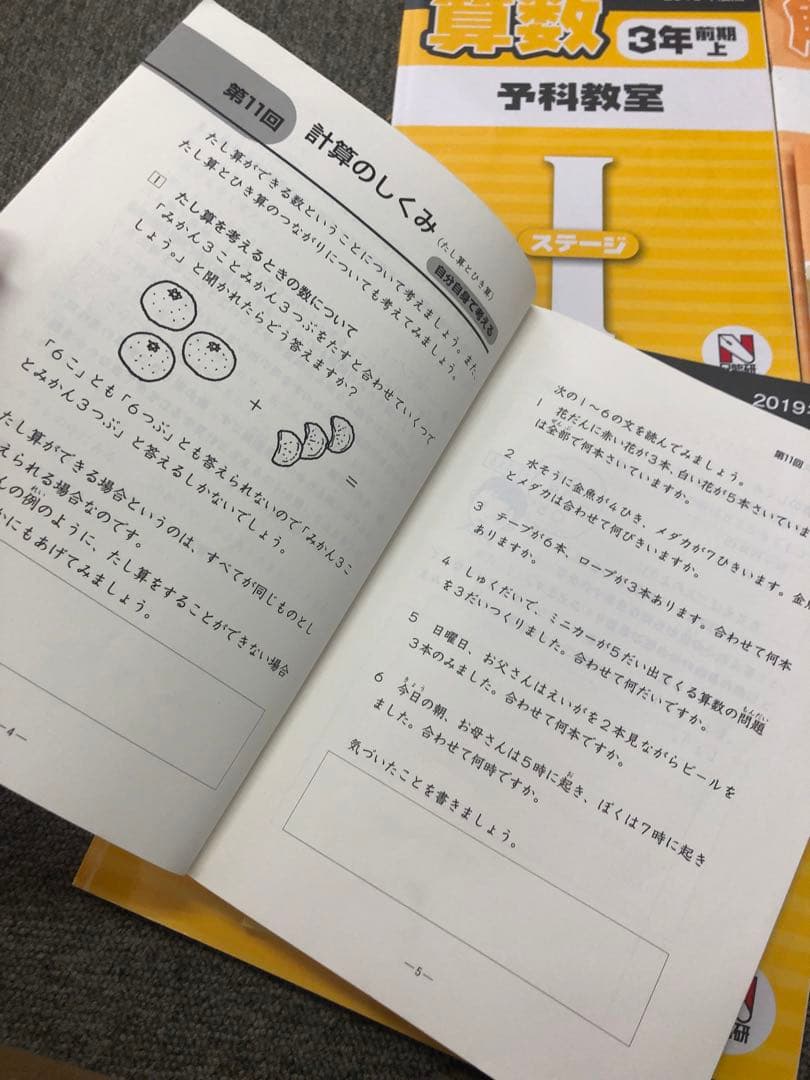 算数
3年前期上
予科教室
I
ステージ
N
2019
第11回
計算のしくみ
(たし算とひき算)
自分自身で考える
たし算ができる数ということについて考えましょう。また、
たし算とひき算のつながりについても考えてみましょう。
1 たし算を考えるときの数について
「みかん3ことみかん3つぶをたすと合わせていくつで
しょう。」と聞かれたらどう答えますか?
+
=
「6こ」とも「6つぶ」とも答えられないので「みかん3こ
とみかん3つぶ」と答えるしかないでしょう。
たし算ができる場合というのは、すべてが同じものとし
えられる場合なのです。
んの例のように、たし算をすることができない場合
かにもあげてみましょう。
—4—
第11回
次の1〜6の文を読んでみましょう。
1 花だんに赤い花が3本、白い花が5本さいていま
は全部で何本さいていますか。
2 水そうに金魚が4ひき、メダカが7ひきいます。金魚
とメダカは合わせて何びきいますか。
3 テープが6本、ロープが3本あります。合わせて何本
ありますか。
4 しゅくだいで、ミニカーが5だい出てくる算数の問題
を3だいつくりました。合わせて何だいですか。
5 日曜日、お父さんはえいがを2本見ながらビールを
3本のみました。合わせて何本ですか。
6 今日の朝、お母さんは5時に起き、ぼくは7時に起き
ました。合わせて何時ですか。
気づいたことを書きましょう。
—5—
研